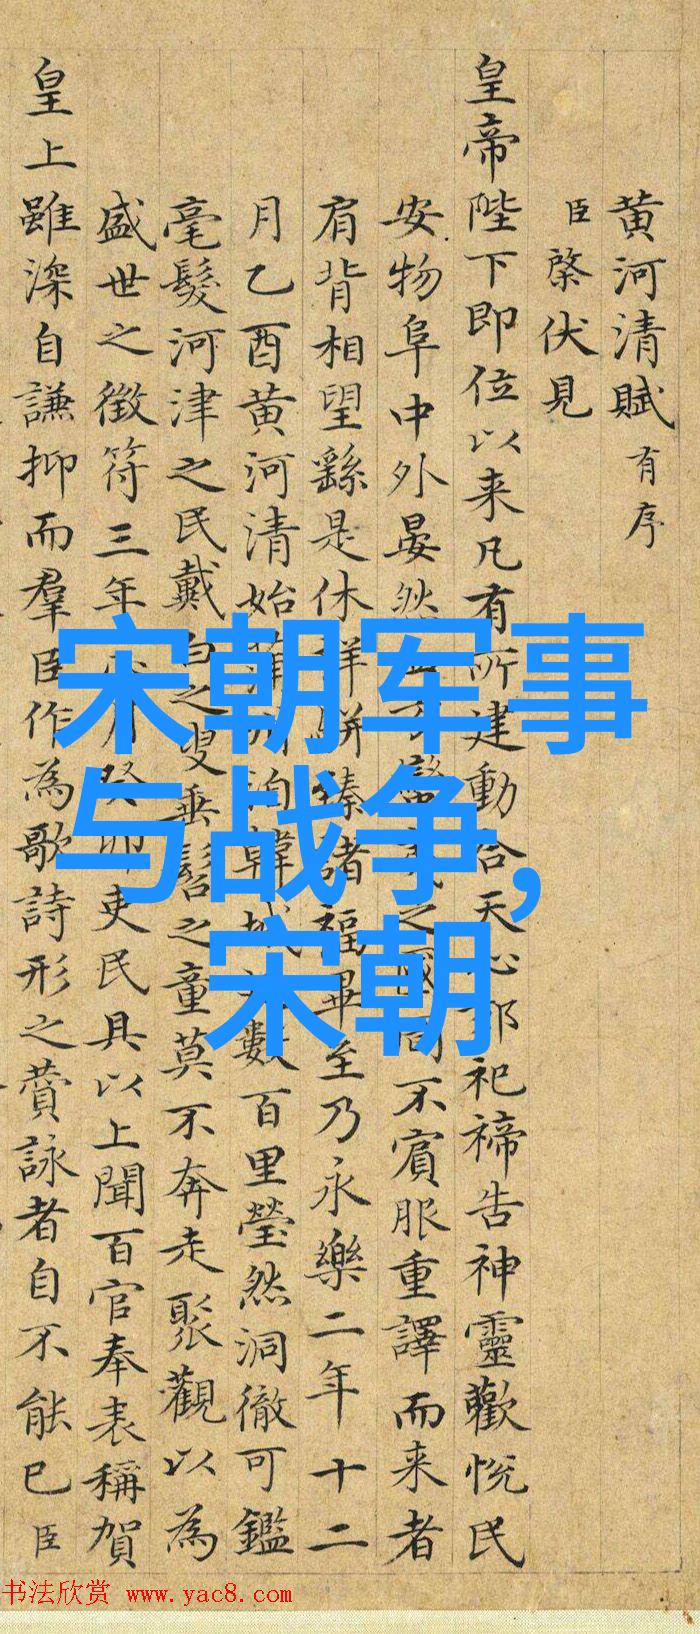 黄河清賦有序
臣棨伏見
皇帝陛下即位以来凡有所建動合天心郊祀禘告神靈歡悦民
安物阜中外晏然之同不賓服重譯而来者
肩背相望繇是休祥駢臻諸福畢至乃永樂二年十二
月乙酉黄河清始蒲州泊韓城數百里瑩然洞徹可鑑
毫髮河津之民戴白之叟垂髫之童莫不奔走聚觀以為
盛世之徵符三年癸卯吏民具以上聞百官奉表稱賀
皇上雖深自謙抑而羣臣作為歌詩形之賛詠者自不能已臣
宋朝军事
与战争,
宋朝
书法欣赏 www.yac8.com